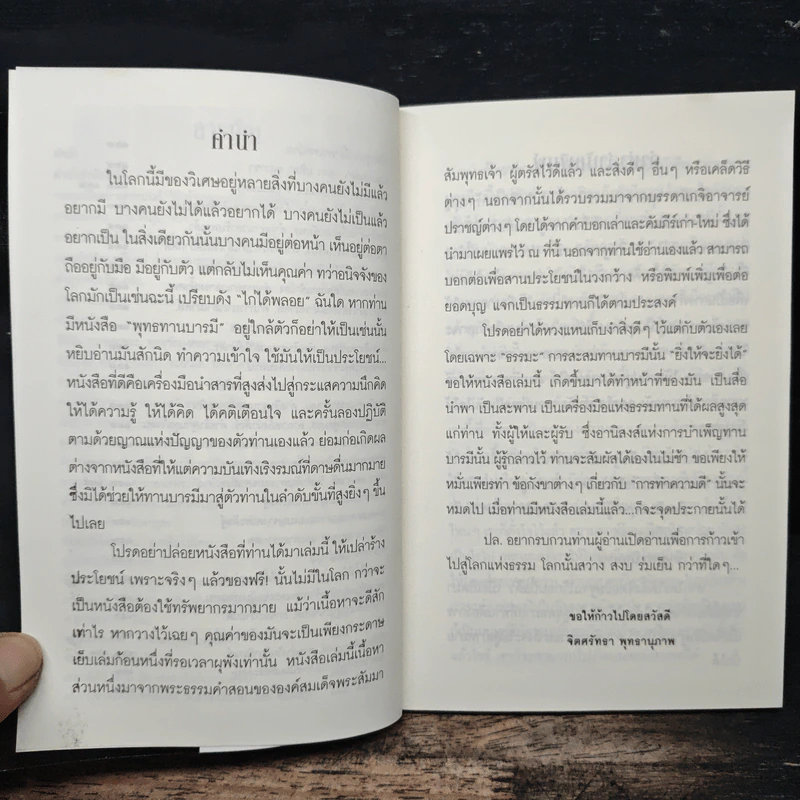 คำนำ
ในโลกนี้มีของวิเศษอยู่หลายสิ่งที่บางคนยังไม่มีแล้ว
อยากมี บางคนยังไม่ได้แล้วอยากได้ บางคนยังไม่เป็นแล้ว
อยากเป็น ในสิ่งเดียวกันนั้นบางคนมีอยู่ต่อหน้า เห็นอยู่ต่อตา
ถืออยู่กับมือ มีอยู่กับตัว แต่กลับไม่เห็นคุณค่า ทว่าอนิจจังของ
โลกมักเป็นเช่นฉะนี้ เปรียบดัง "ไก่ได้พลอย" ฉันใด หากท่าน
มีหนังสือ "พุทธทานบารมี" อยู่ใกล้ตัวก็อย่าให้เป็นเช่นนั้น
หยิบอ่านมันสักนิด ทำความเข้าใจ ใช้มันให้เป็นประโยชน์...
หนังสือที่ดีคือเครื่องมือนำสารที่สูงส่งไปสู่กระแสความนึกคิด
ให้ได้ความรู้ ให้ได้คิด ได้คติเตือนใจ และครั้นลองปฏิบัติ
ตามด้วยญาณแห่งปัญญาของตัวท่านเองแล้ว ย่อมก่อเกิดผล
ต่างจากหนังสือที่ให้แต่ความบันเทิงเริงรมณ์ที่ดาษดื่นมากมาย
ซึ่งมิได้ช่วยให้ทานบารมีมาสู่ตัวท่านในลำดับขั้นที่สูงยิ่งๆ ขึ้น
ไปเลย
โปรดอย่าปล่อยหนังสือที่ท่านได้มาเล่มนี้ ให้เปล่าร้าง
ประโยชน์ เพราะจริงๆ แล้วของฟรี! นั้นไม่มีในโลก กว่าจะ
เป็นหนังสือต้องใช้ทรัพยากรมากมาย แม้ว่าเนื้อหาจะดีสัก
เท่าไร หากวางไว้เฉยๆ คุณค่าของมันจะเป็นเพียงกระดาษ
เย็บเล่มก้อนหนึ่งที่รอเวลาผุพังเท่านั้น หนังสือเล่มนี้เนื้อหา
ส่วนหนึ่งมาจากพระธรรมคำสอนขององค์สมเด็จพระสัมมา
สัมพุทธเจ้า ผู้ตรัสไว้ดีแล้ว และสิ่งดีๆ อื่นๆ หรือเคล็ดวิธี
ต่างๆ นอกจากนั้นได้รวบรวมมาจากบรรดาเกจิอาจารย์
ปราชญ์ต่างๆ โดยได้จากคำบอกเล่าและคัมภีร์เก่า-ใหม่ ซึ่งได้
นำมาเผยแพร่ไว้ ณ ที่นี้ นอกจากท่านใช้อ่านเองแล้ว สามารถ
บอกต่อเพื่อสานประโยชน์ในวงกว้าง หรือพิมพ์เพิ่มเพื่อต่อ
ยอดบุญ แจกเป็นธรรมทานก็ได้ตามประสงค์
โปรดอย่าได้หวงแหนเก็บงำสิ่งดีๆ ไว้แต่กับตัวเองเลย
โดยเฉพาะ "ธรรมะ" การสะสมทานบารมีนั้น "ยิ่งให้จะยิ่งได้"
ขอให้หนังสือเล่มนี้ เกิดขึ้นมาได้ทำหน้าที่ของมัน เป็นสื่อ
นำพา เป็นสะพาน เป็นเครื่องมือแห่งธรรมทานที่ได้ผลสูงสุด
แก่ท่าน ทั้งผู้ให้และผู้รับ ซึ่งอานิสงส์แห่งการบำเพ็ญทาน
บารมีนั้น ผู้รู้กล่าวไว้ ท่านจะสัมผัสได้เองในไม่ช้า ขอเพียงให้
หมั่นเพียรทำ ข้อกังขาต่างๆ เกี่ยวกับ "การทำความดี" นั้นจะ
หมดไป เมื่อท่านมีหนังสือเล่มนี้แล้ว...ก็จะจุดประกายนั้นได้
ปล. อยากรบกวนท่านผู้อ่านเปิดอ่านเพื่อการก้าวเข้า
ไปสู่โลกแห่งธรรม โลกนั้นสว่าง สงบ ร่มเย็น กว่าที่ใดๆ...
ขอให้ก้าวไปโดยสวัสดี
จิตศรัทธา พุทธานุภาพ